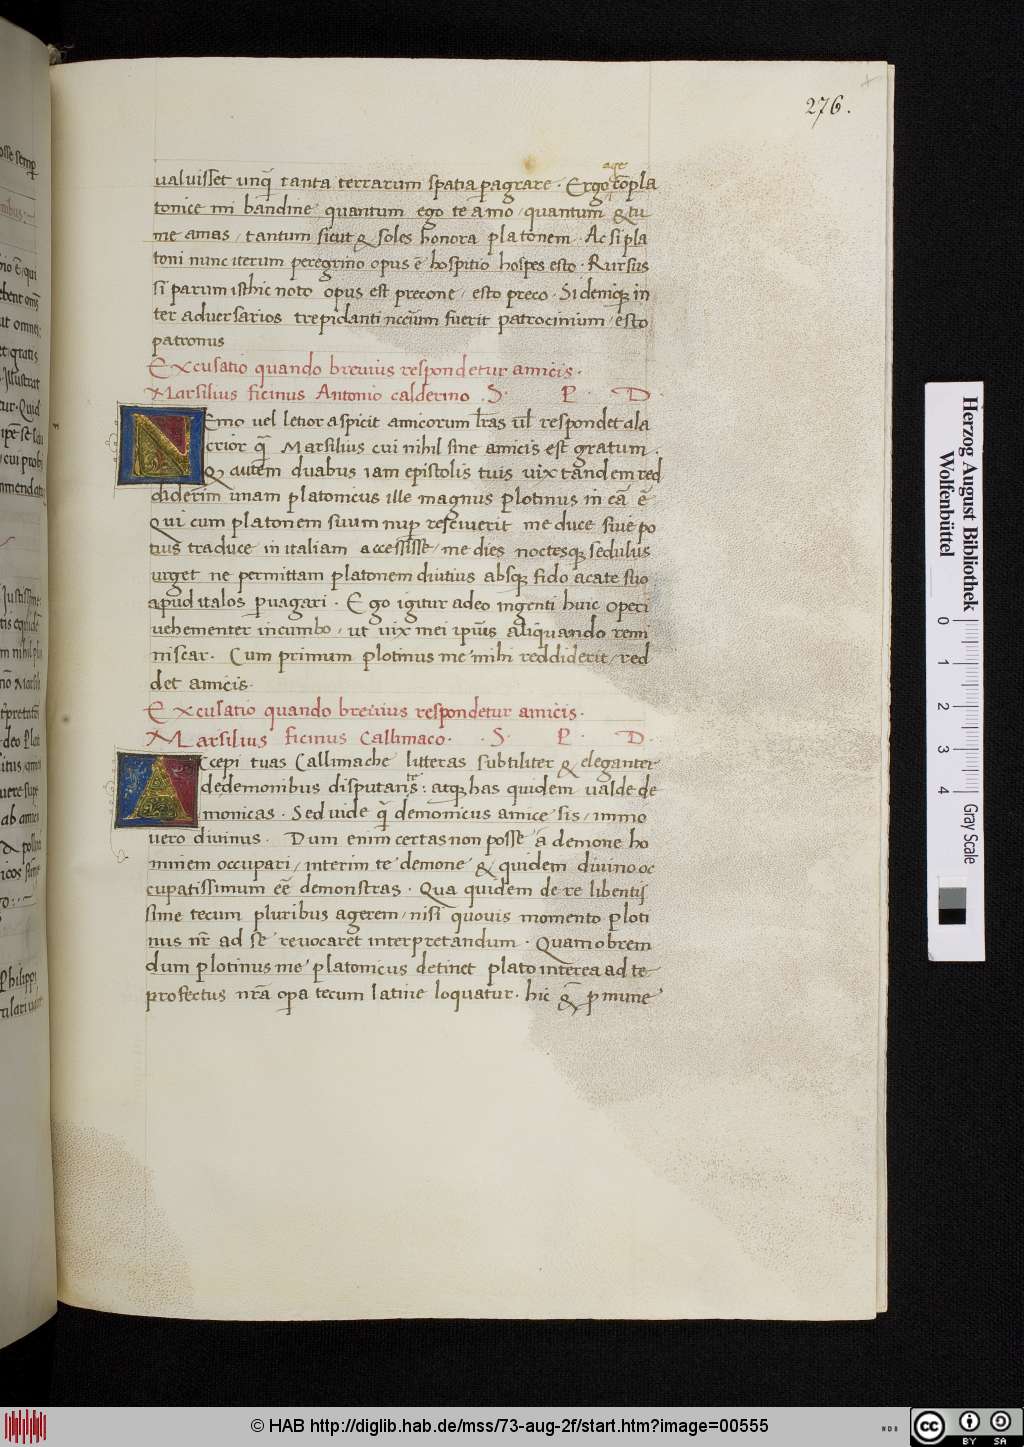 276.
age
ualuisset unq̃ tanta terrarum spatia ꝑagrare. Ergo cõpla
tonice mi bandine quantum ego te amo / quantum & tu
me amas / tantum sicut & soles honora platonem. Ac si pla
toni nunc iterum peregrino opus ẽ hospitio hospes esto. Rursus
si parum isthic noto opus est precone / esto preco. Si deniqꝫ in
ter aduersarios trepidanti nccũm fuerit patrocinium / esto
patronus
Excusatio quando breuius respondetur amicis.
Marsilius ficinus Antonio calderino .S. P. D.
NEmo uel letior aspicit amicorum l̃ras ul̃ respondet ala
crior q̃ Marsilius cui nihil sine amicis est gratum.
Q autem duabus iam epistolis tuis uix tandem red
diderim unam platonicus ille magnus plotinus in cã ẽ
Qui cum platonem suum nuꝑ resciuerit me duce siue po
tius traduce in italiam accessisse / me dies noctesqꝫ sedulus
urget ne permittam platonem diutius absqꝫ fido acate suo
apud italos ꝑuagari. Ego igitur adeo ingenti huic operi
uehementer incumbo / ut uix mei ipĩus aliquando remi
niscar. Cum primum plotinus me mihi reddiderit / red
det amicis.
Excusatio quando breuius respondetur amicis.
Marsilius ficinus Callimaco. .S. P. D.
ACcepi tuas Callimache litteras subtiliter & eleganter
de demonibus disputantis: atqꝫ has quidem ualde de
monicas. Sed uide q̃ demonicus amice sis / immo
uero diuinus. Dum enim certas non posse a demone ho
minem occupari / interim te demone & quidem diuino oc
cupatissimum eẽ demonstras. Qua quidem de re libentis
sime tecum pluribus agerem / nisi quouis momento ploti
nus nr̃ ad se reuocaret interpretandum. Quamobrem
dum plotinus me platonicus detinet plato interea ad te
profectus nr̃a oꝑa tecum latine loquatur. hic &̃ ꝑ mune
Herzog August Bibliothek
Wolfenbüttel
0 1 2 3 4
Gray Scale
© HAB http://diglib.hab.de/mss/73-aug-2f/start.htm?image=00555
WDB
cc
BY SA